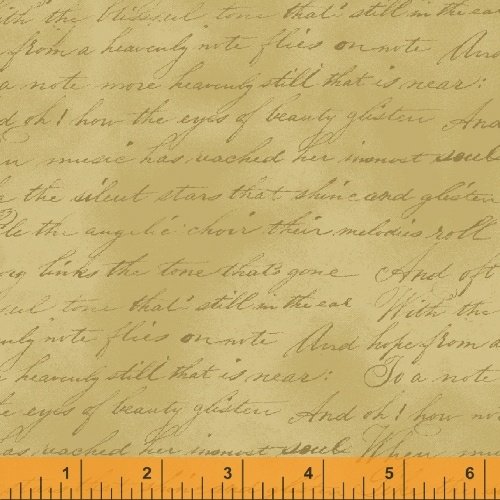 with the blissful tone that's still in the ear
from a heavenly note flies on note And
a note more heavenly still that is near:
d oh! how the eyes of beauty glisten And
en music has reached her inmost soul
the silent stars that shine and glisten
le the angelic choir their melodies roll
links the tone that's gone And oft
sful tone that's still in the ear With the
nly note flies on note And hope from a
heavenly still that is near: To a note
e eyes of beauty glisten And oh! how
as reached her inmost soul When music
1 2 3 4 5 6